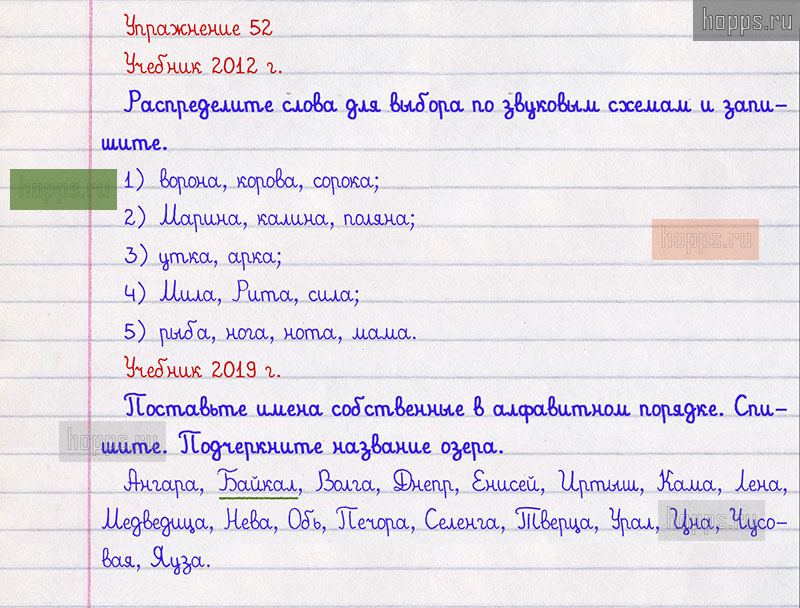 hopps.ru
Упражнение 52
Учебник 2012 г.
Распределите слова для выбора по звуковым схемам и запи-
шите.
hopps.ru
1) ворона, корова, сорока;
2) Марина, калина, поляна;
hopps.ru
3) утка, арка;
4) Мила, Рита, сила;
5) рыба, нога, нота, мама.
Учебник 2019 г.
Поставьте имена собственные в алфавитном порядке. Спи-
hopps.ru
шите. Подчеркните название озера.
Ангара, Байкал, Волга, Днепр, Енисей, Иртыш, Кама, Лена,
Медведица, Нева, Обь, Печора, Селенга, Тверца, Урал, Цна, Чусо-
hopps.ru
вая, Яуза.